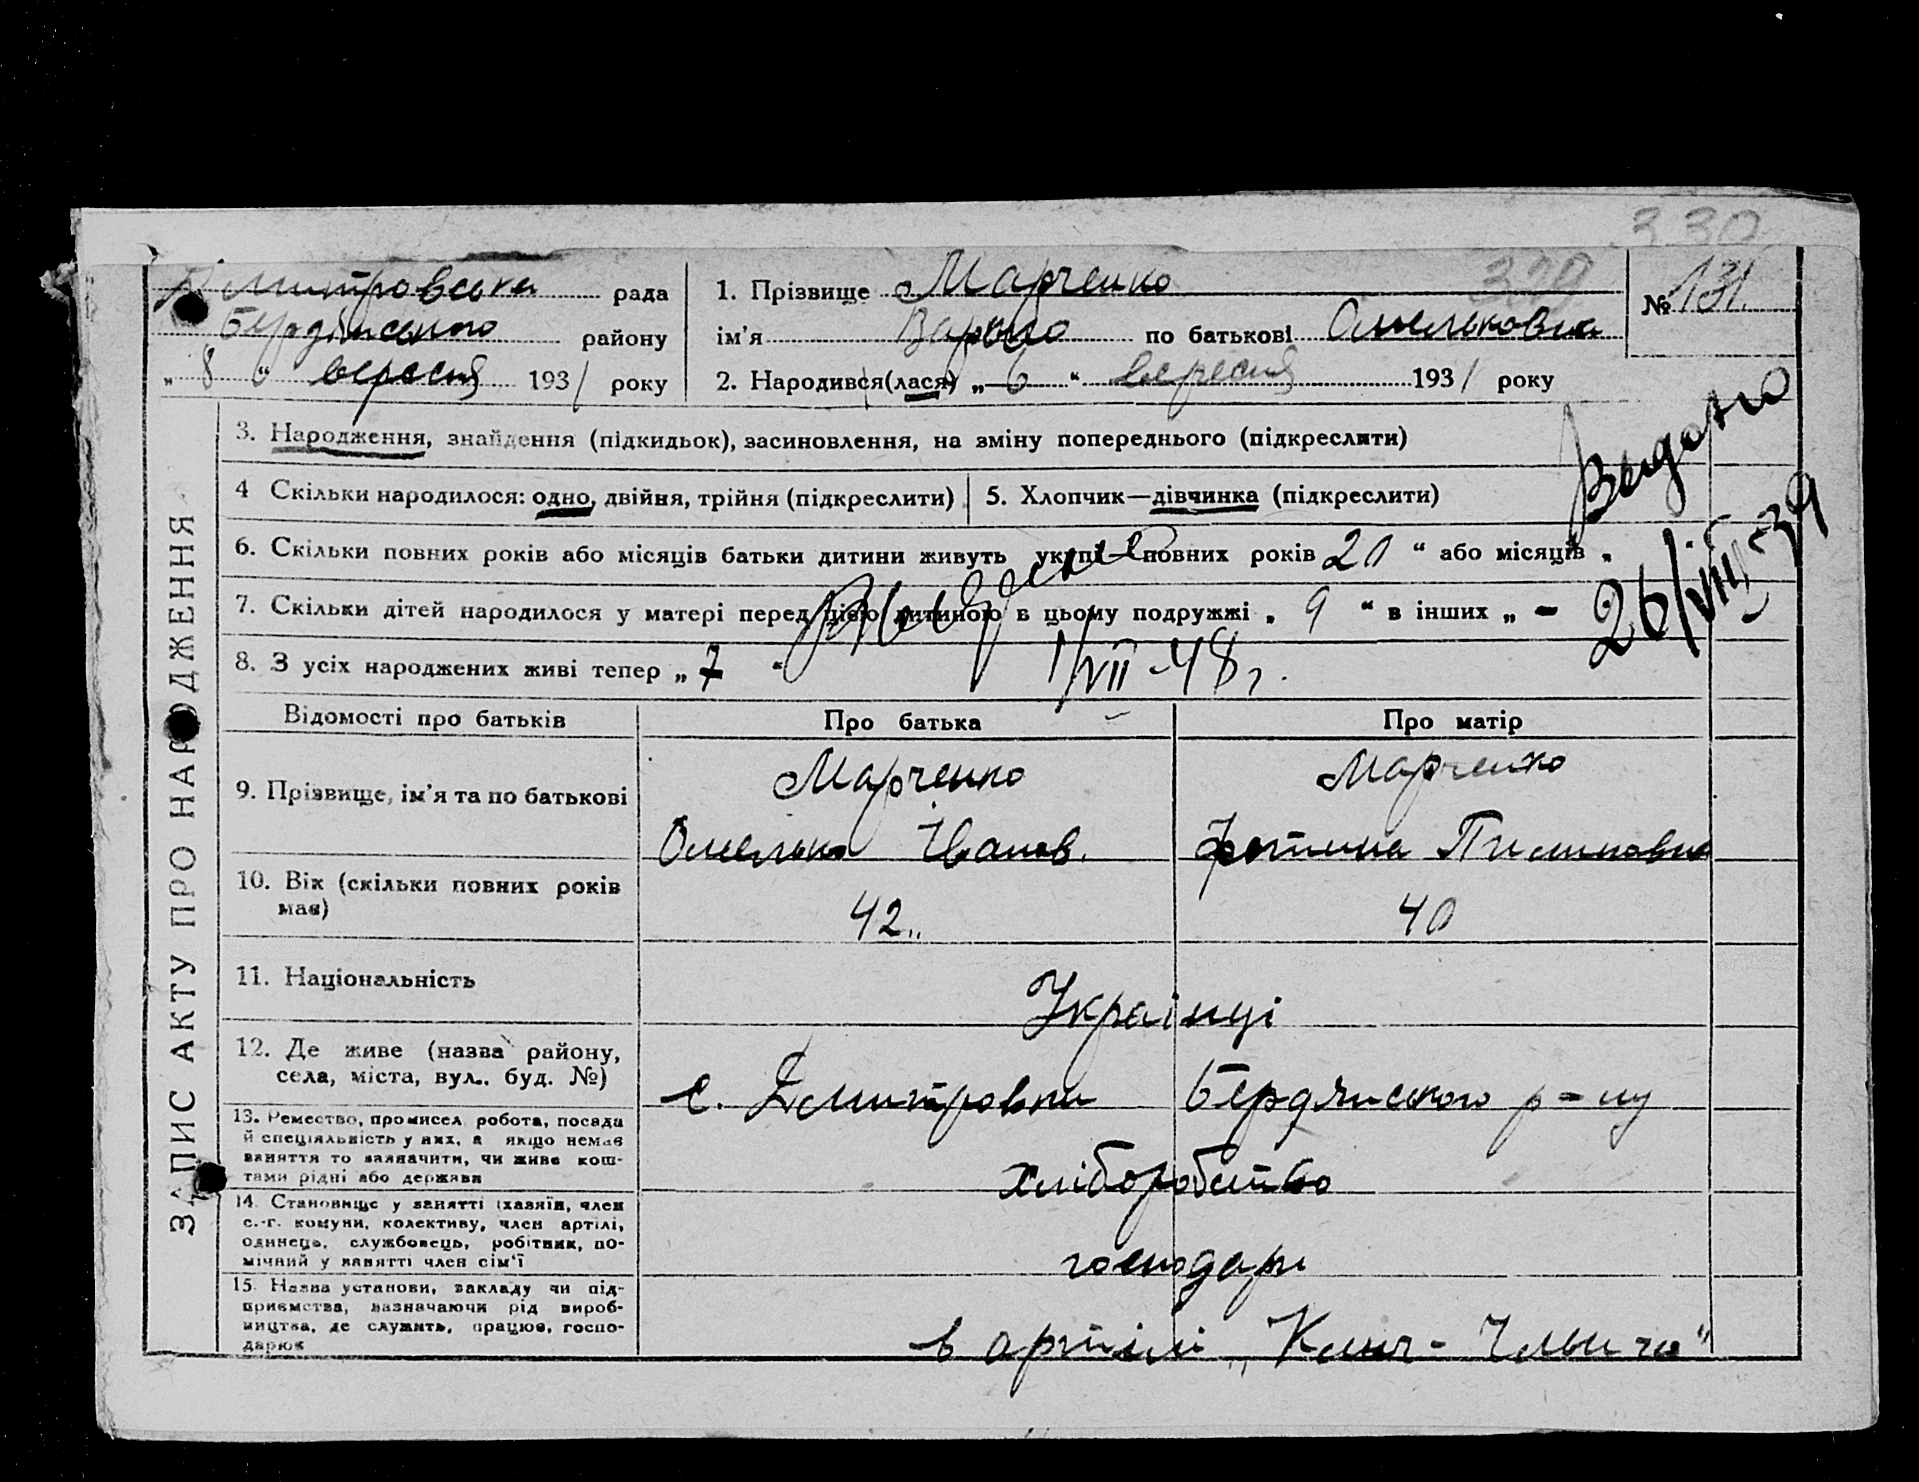 330
329
Дмитровська рада
Бердянського району
„ 8 “ вересня 1931 року
1. Прізвище Марченко
ім'я по батькові Омельковна
2. Народився(лася) „ 6 “ вересня 1931 року
№ 131.
3. Народження, знайдення (підкидьок), засиновлення, на зміну попереднього (підкреслити)
4 Скільки народилося: одно, двійня, трійня (підкреслити)
5. Хлопчик—дівчинка (підкреслити)
Видано
26/VIII-39
6. Скільки повних років або місяців батьки дитини живуть укупі „ повних років 20 “ або місяців „
7. Скільки дітей народилося у матері перед цією дитиною в цьому подружжі „ 9 “ в інших „ -
8. З усіх народжених живі тепер „ 7 “
1/VII-48 г.
ЗАПИС АКТУ ПРО НАРОДЖЕННЯ
Відомості про батьків
Про батька
Про матір
9. Прізвище, ім'я та по батькові
Марченко
Омелько Іванов.
Марченко
Фотина Пилиповна
10. Вік (скільки повних років
має)
42
40
11. Національність
Українці
12. Де живе (назва району,
села, міста, вул., буд. №)
с. Дмитровка Бердянського р-ну
13. Ремество, промисел, робота, посада
й спеціяльність у них, а якщо немає
заняття то зазначити, чи живе кош-
тами рідні або держави
хліборобство
14. Становище у занятті (хазяїн, член
с.-г. комуни, колективу, член артілі,
одинець, службовець, робітник, по-
мічний у занятті член сім'ї
господари
15. Назва установи, закладу чи під-
приємства, зазначаючи рід вироб-
ництва, де служить, працює, госпо-
дарює
в артілі „Клич-Ільича"